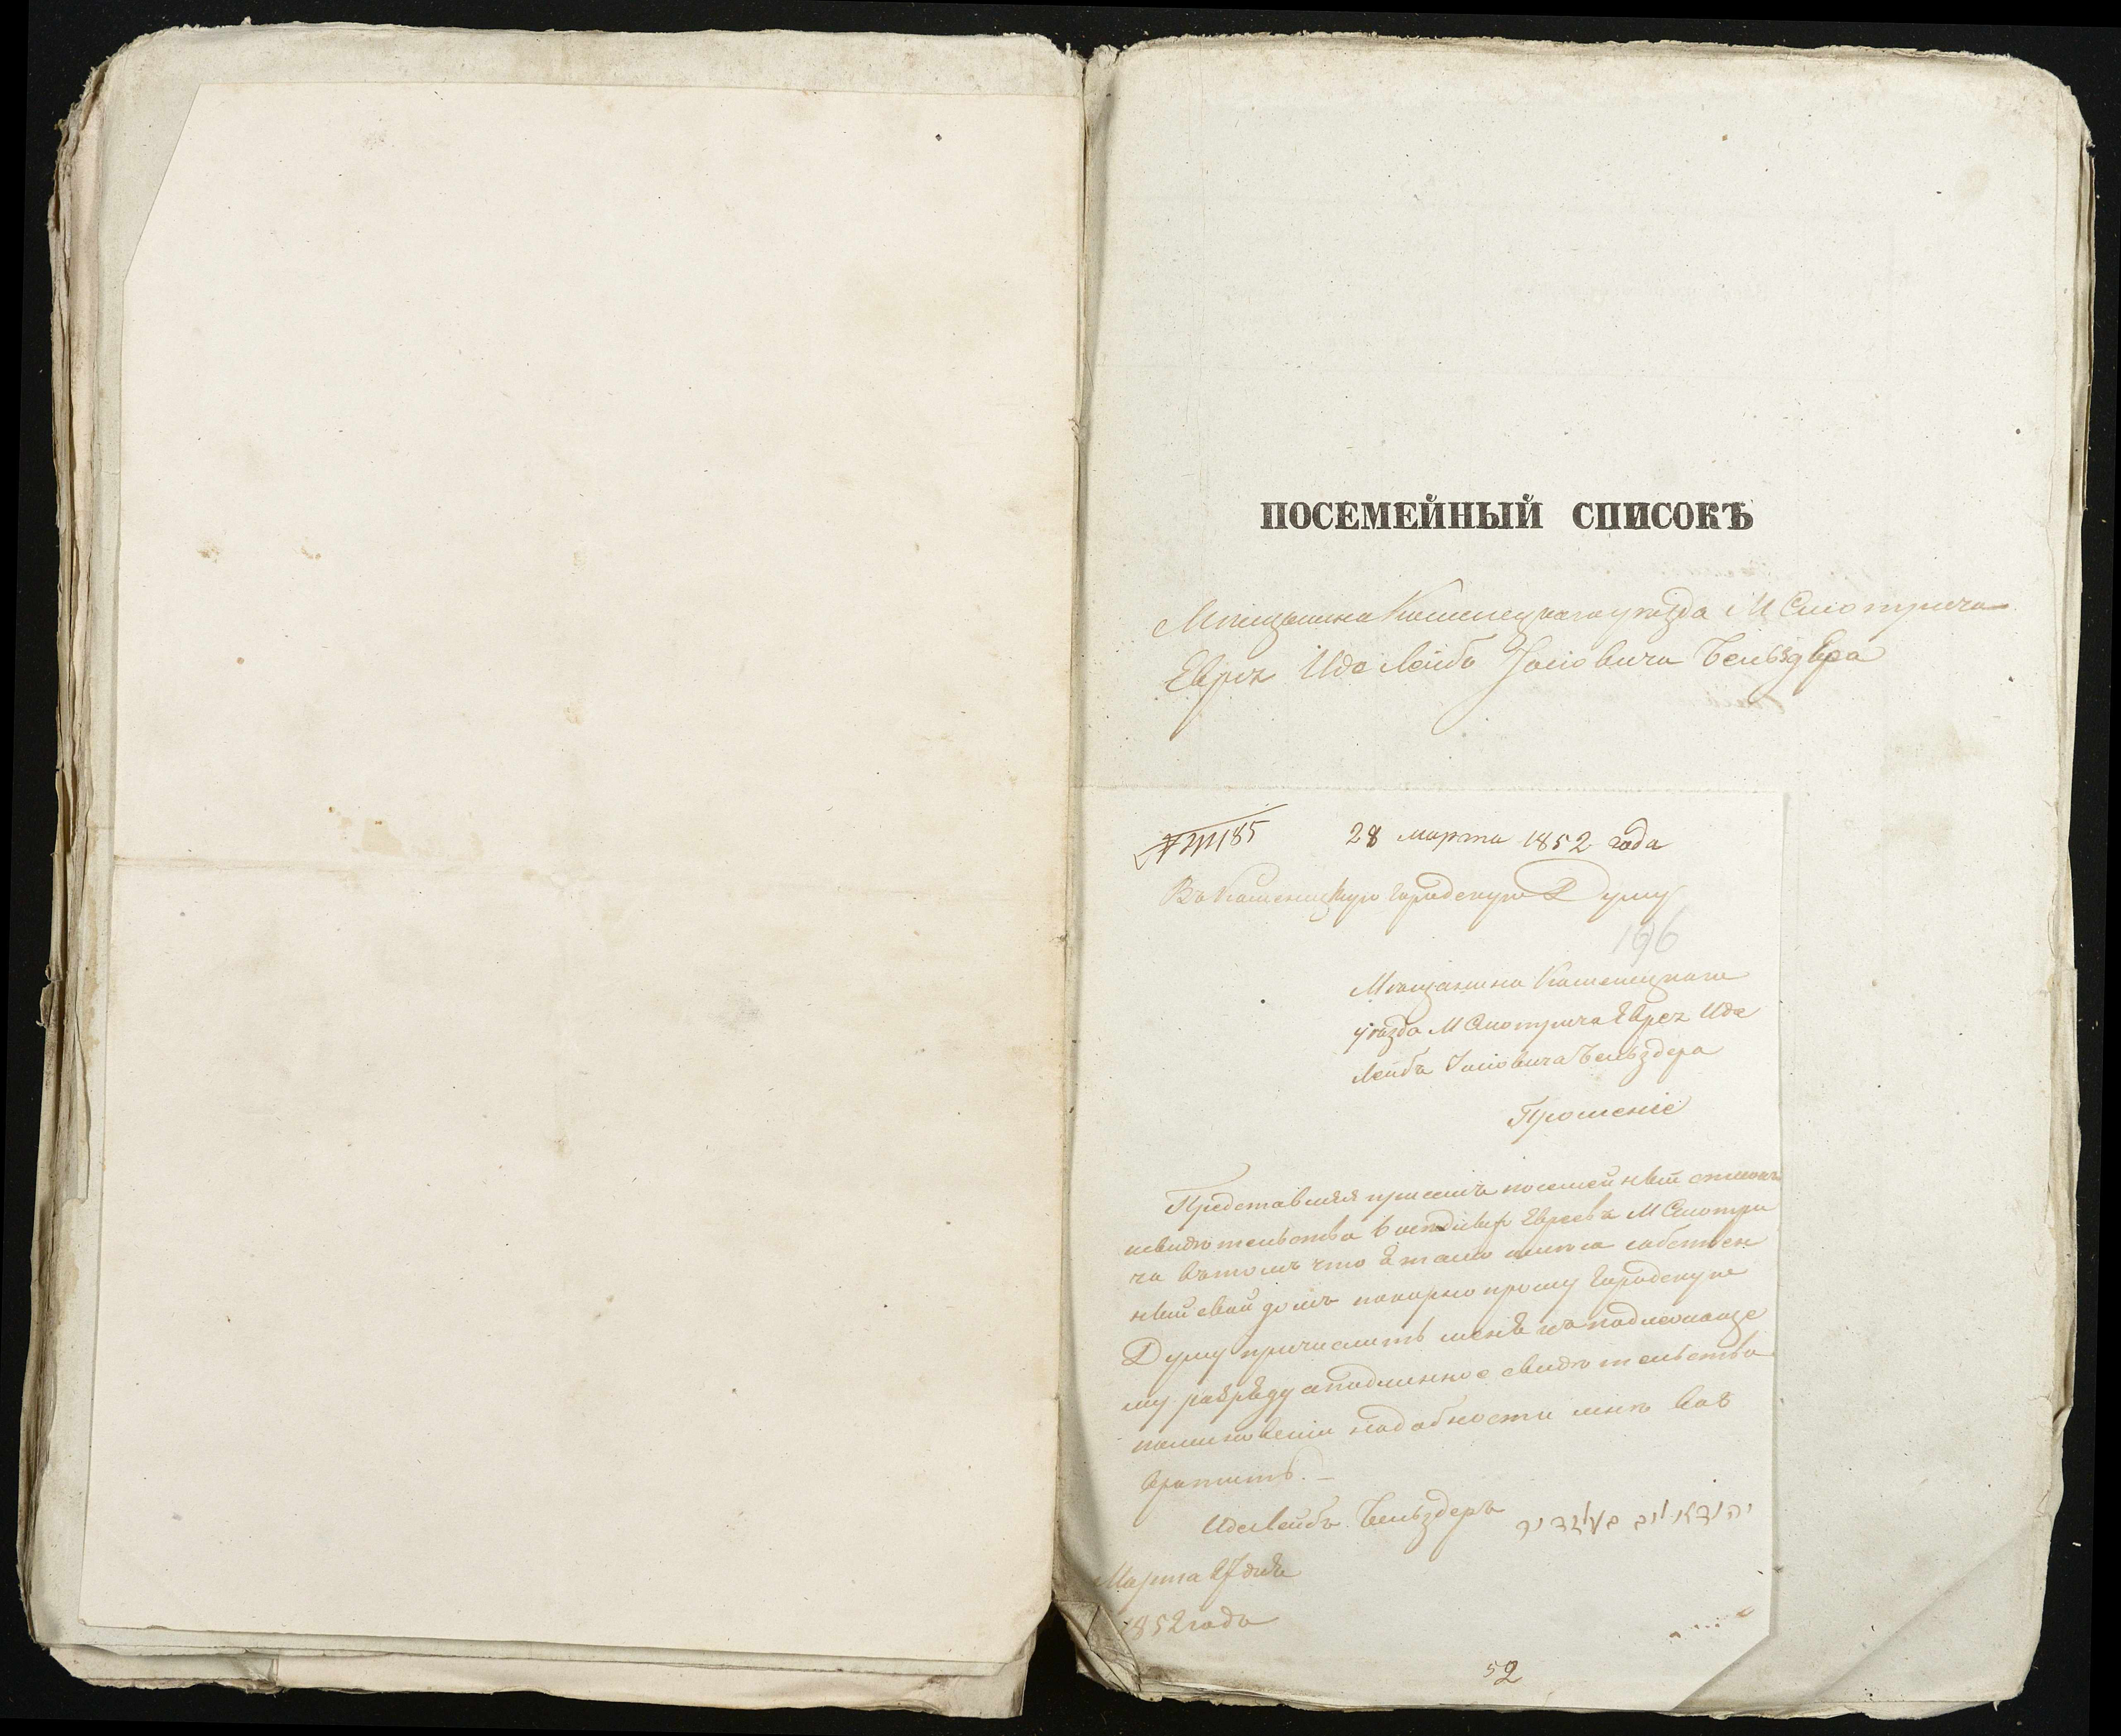 ПОСЕМЕЙНЫЙ СПИСОКЪ
Мѣщанина Каменецкаго уѣзда М Смотрича
Еврея Иде Лейба Іосіовича Бельздера
185
28 марта 1852 года
Въ Каменецкую Городскую Думу
196
Мѣщанина Каменецкаго
уѣзда М Смотрича Еврея Иде
Лейба Іосіовича Бельздера
Прошеніе
Представляя присемъ посемейный списокъ
исвидѣтельство Евреевъ М Смотри
ча вътомъ что я тамо имѣю собствен
ный свой домъ покорно прошу Городскую
Думу причислить меня къ надлежаще
му разряду аподлинное свидѣтельство
поминовеніи надобности мнѣ воз
вратить.
Иде Лейбъ Бельздеръ יהודא ליב בעלזדיר
Марта 27 дня
1852 года
52